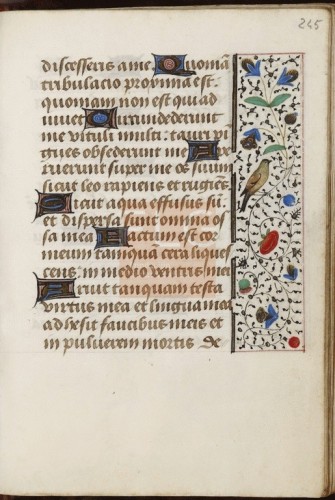 245
discesseris a me. Quoniā
tribulacio proxima est.
quoniam non est qui ad
iuuet Circundederunt
me vituli multi: tauri pi
gues obsederunt me A
ruerunt super me os suum
sicut leo rapiens et rugiēs
Sicut aqua effusus sū.
et dispersa sunt omnia os
sa mea Factum est cor
meum tanquā cera liques
cens: in medio ventris mei
Aruit tanquam testa
virtus mea et lingua mea
adhesit faucibus meis et
in puluerem mortis de